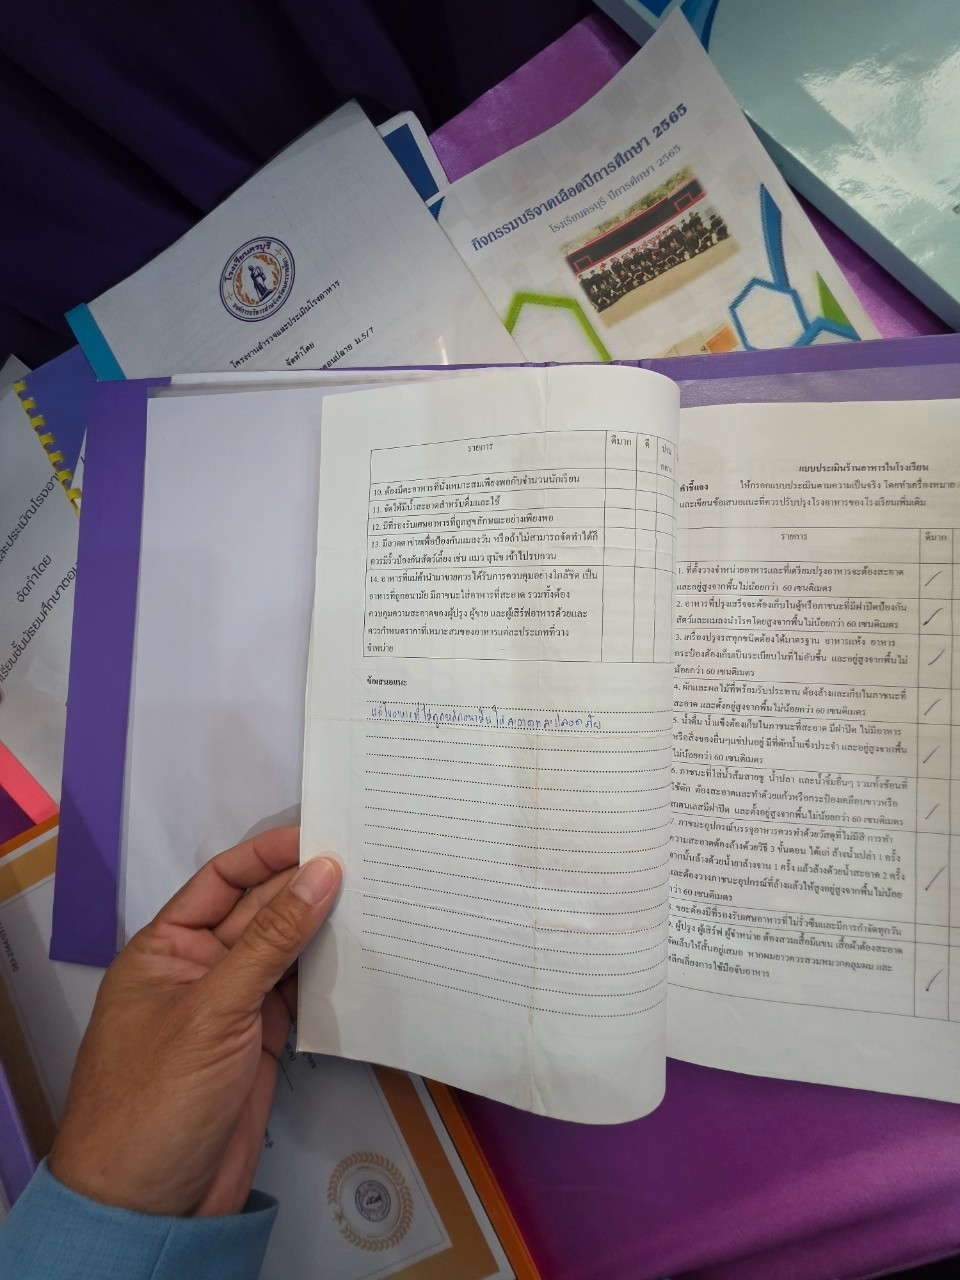 กิจกรรมบริจาคเลือดปีการศึกษา 2565
โรงเรียนครบุรี ปีการศึกษา 2565
โรงเรียนครบุรี
โครงงานสำรวจและประเมินโรงอาหาร
จัดทำโดย
ตอนปลาย ม.5/7
และประเมินโรงอา
จัดทำโดย
เรียนชั้นมัธยมศึกษาตอน
รายการ
ดีมาก
ดี
ปาน
กลาง
10. ต้องมีตะอาหารที่นั่งเหมาะสมเพียงพอกับจำนวนนักเรียน
11. จัดให้มีน้ำสะอาดสำหรับดื่มและใช้
12. มีที่รองรับเศษอาหารที่ถูกสุขลักษณะอย่างเพียงพอ
13. มีลวดตาข่ายเพื่อป้องกันแมลงวัน หรือถ้าไม่สามารถจัดทำได้ก็
ควรมีรั้วป้องกันสัตว์เลี้ยง เช่น แมว สุนัข เข้าไปรบกวน
14. อาหารที่แม่ค้านำมาขายควรได้รับการควบคุมอย่างใกล้ชิด เป็น
อาหารที่ถูกอนามัย มีภาชนะใส่อาหารที่สะอาด รวมทั้งต้อง
ควบคุมความสะอาดของผู้ปรุง ผู้ขาย และผู้เสิร์ฟอาหารด้วยและ
ควรกำหนดราคาที่เหมาะสมของอาหารแต่ละประเภทที่วาง
จำหน่าย
ข้อเสนอแนะ
แบบประเมินร้านอาหารในโรงเรียน
คำชี้แจง ให้กรอกแบบประเมินตามความเป็นจริง โดยทำเครื่องหมาย /
และเขียนข้อเสนอแนะที่ควรปรับปรุงโรงอาหารของโรงเรียนเพิ่มเติม
รายการ
ดีมาก
1. ที่ตั้งวางจำหน่ายอาหารและที่เตรียมปรุงอาหารจะต้องสะอาด
และอยู่สูงจากพื้นไม่น้อยกว่า 60 เซนติเมตร
2. อาหารที่ปรุงเสร็จจะต้องเก็บในตู้หรือภาชนะที่มีฝาปิดป้องกัน
สัตว์และแมลงนำโรคโดยสูงจากพื้นไม่น้อยกว่า 60 เซนติเมตร
3. เครื่องปรุงรสทุกชนิดต้องได้มาตรฐาน อาหารแห้ง อาหาร
กระป๋องต้องเก็บเป็นระเบียบในที่ไม่อับชื้น และอยู่สูงจากพื้นไม่
น้อยกว่า 60 เซนติเมตร
4. ผักและผลไม้ที่พร้อมรับประทาน ต้องล้างและเก็บในภาชนะที่
สะอาด และตั้งอยู่สูงจากพื้นไม่น้อยกว่า 60 เซนติเมตร
5. น้ำดื่ม น้ำแข็งต้องเก็บในภาชนะที่สะอาด มีฝาปิด ไม่มีอาหาร
หรือสิ่งของอื่นๆแช่ปนอยู่ มีที่ตักน้ำแข็งประจำ และอยู่สูงจากพื้น
ไม่น้อยกว่า 60 เซนติเมตร
6. ภาชนะที่ใส่น้ำส้มสายชู น้ำปลา และน้ำจิ้มอื่นๆ รวมทั้งช้อนที่
ใช้ตัก ต้องสะอาดและทำด้วยแก้วหรือกระป๋องเคลือบขาวหรือ
สเตนเลสมีฝาปิด และตั้งอยู่สูงจากพื้นไม่น้อยกว่า 60 เซนติเมตร
7. ภาชนะอุปกรณ์บรรจุอาหารควรทำด้วยวัสดุที่ไม่มีสี การทำ
ความสะอาดต้องล้างด้วยวิธี 3 ขั้นตอน ได้แก่ ล้างน้ำเปล่า 1 ครั้ง
จากนั้นล้างด้วยน้ำยาล้างจาน 1 ครั้ง แล้วล้างด้วยน้ำสะอาด 2 ครั้ง
และต้องวางภาชนะอุปกรณ์ที่ล้างแล้วให้สูงอยู่สูงจากพื้นไม่น้อย
กว่า 60 เซนติเมตร
. ขยะต้องมีที่รองรับเศษอาหารที่ไม่รั่วซึมและมีการกำจัดทุกวัน
. ผู้ปรุง ผู้เสิร์ฟ ผู้จำหน่าย ต้องสวมเสื้อมีแขน เสื้อผ้าต้องสะอาด
ตัดเล็บให้สั้นอยู่เสมอ หากผมยาวควรสวมหมวกคลุมผม และ
หลีกเลี่ยงการใช้มือจับอาหาร